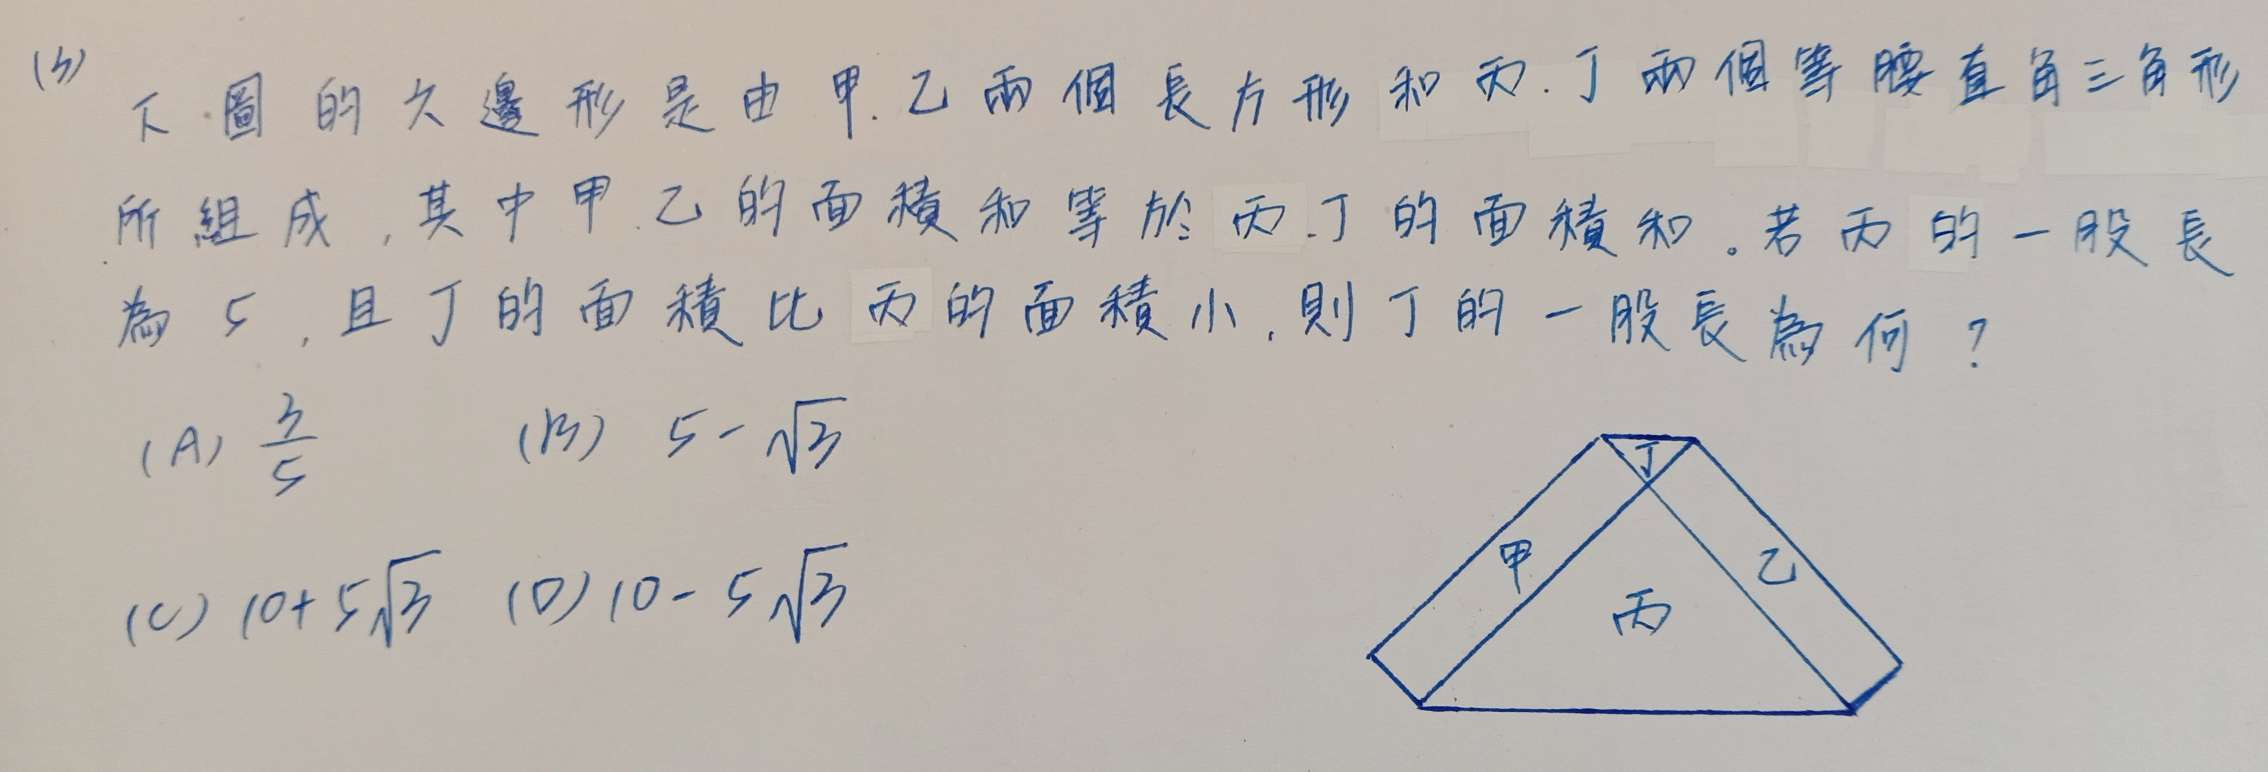 (3)
下圖的六邊形是由甲.乙兩個長方形和丙.丁兩個等腰直角三角形
所組成,其中甲.乙的面積和等於丙.丁的面積和。若丙的一股長
為5,且丁的面積比丙的面積小,則丁的一股長為何?
(A) 3/5 (B) 5-√3
(C) 10+5√3 (D) 10-5√3
丁
甲 乙
丙